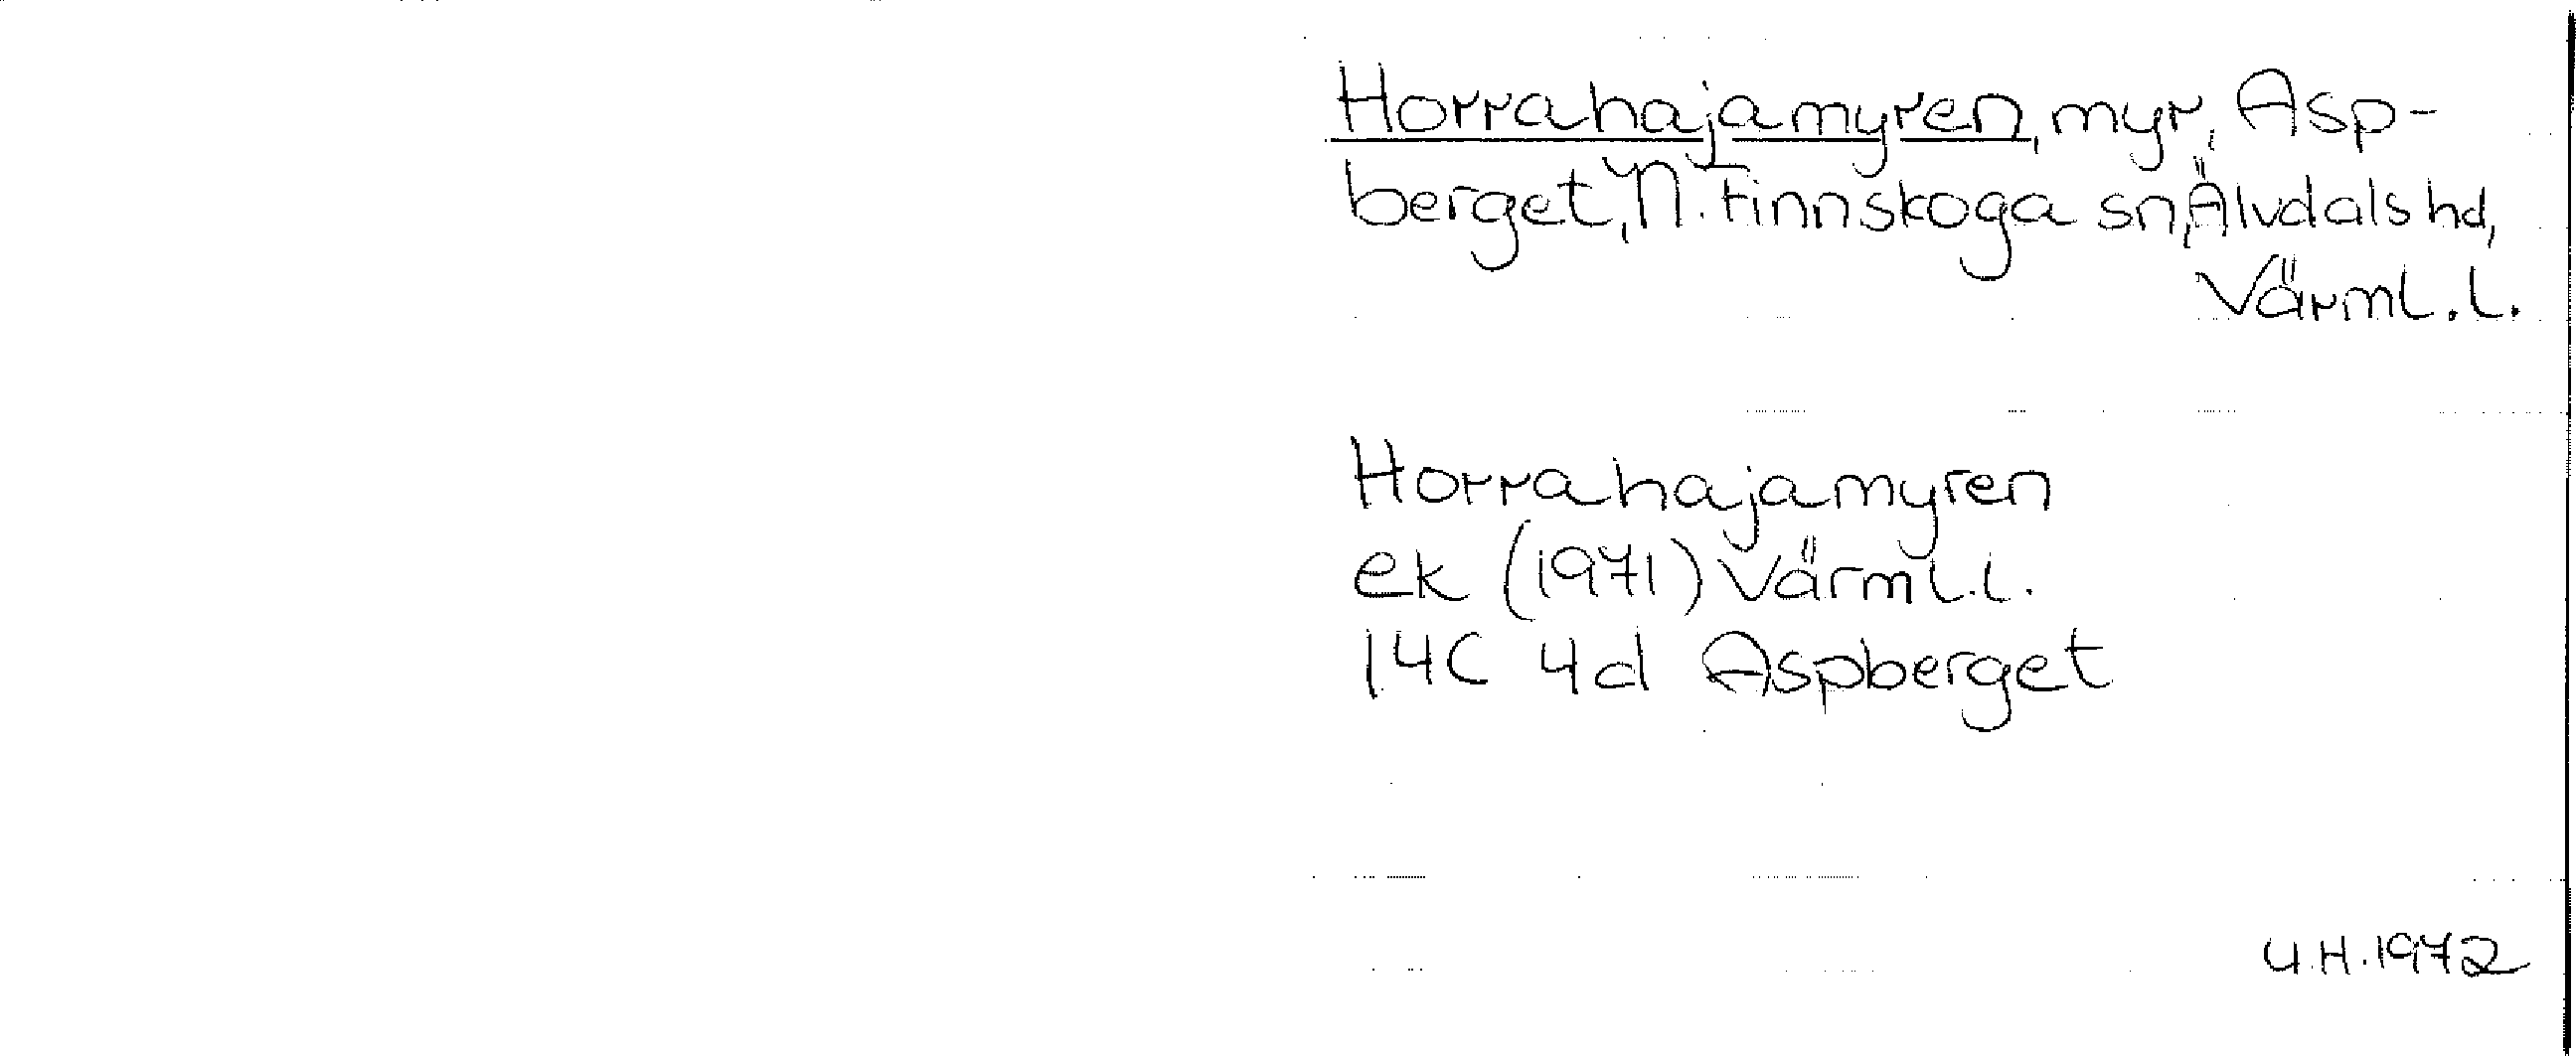 Horrahajamyren, myr, Asp-
berget, N. Finnskoga sn, Älvdals hd,
Värml.l.
Horrahajamyren
ek (1971) Värml.l.
14C 4d Aspberget
U.H.1972